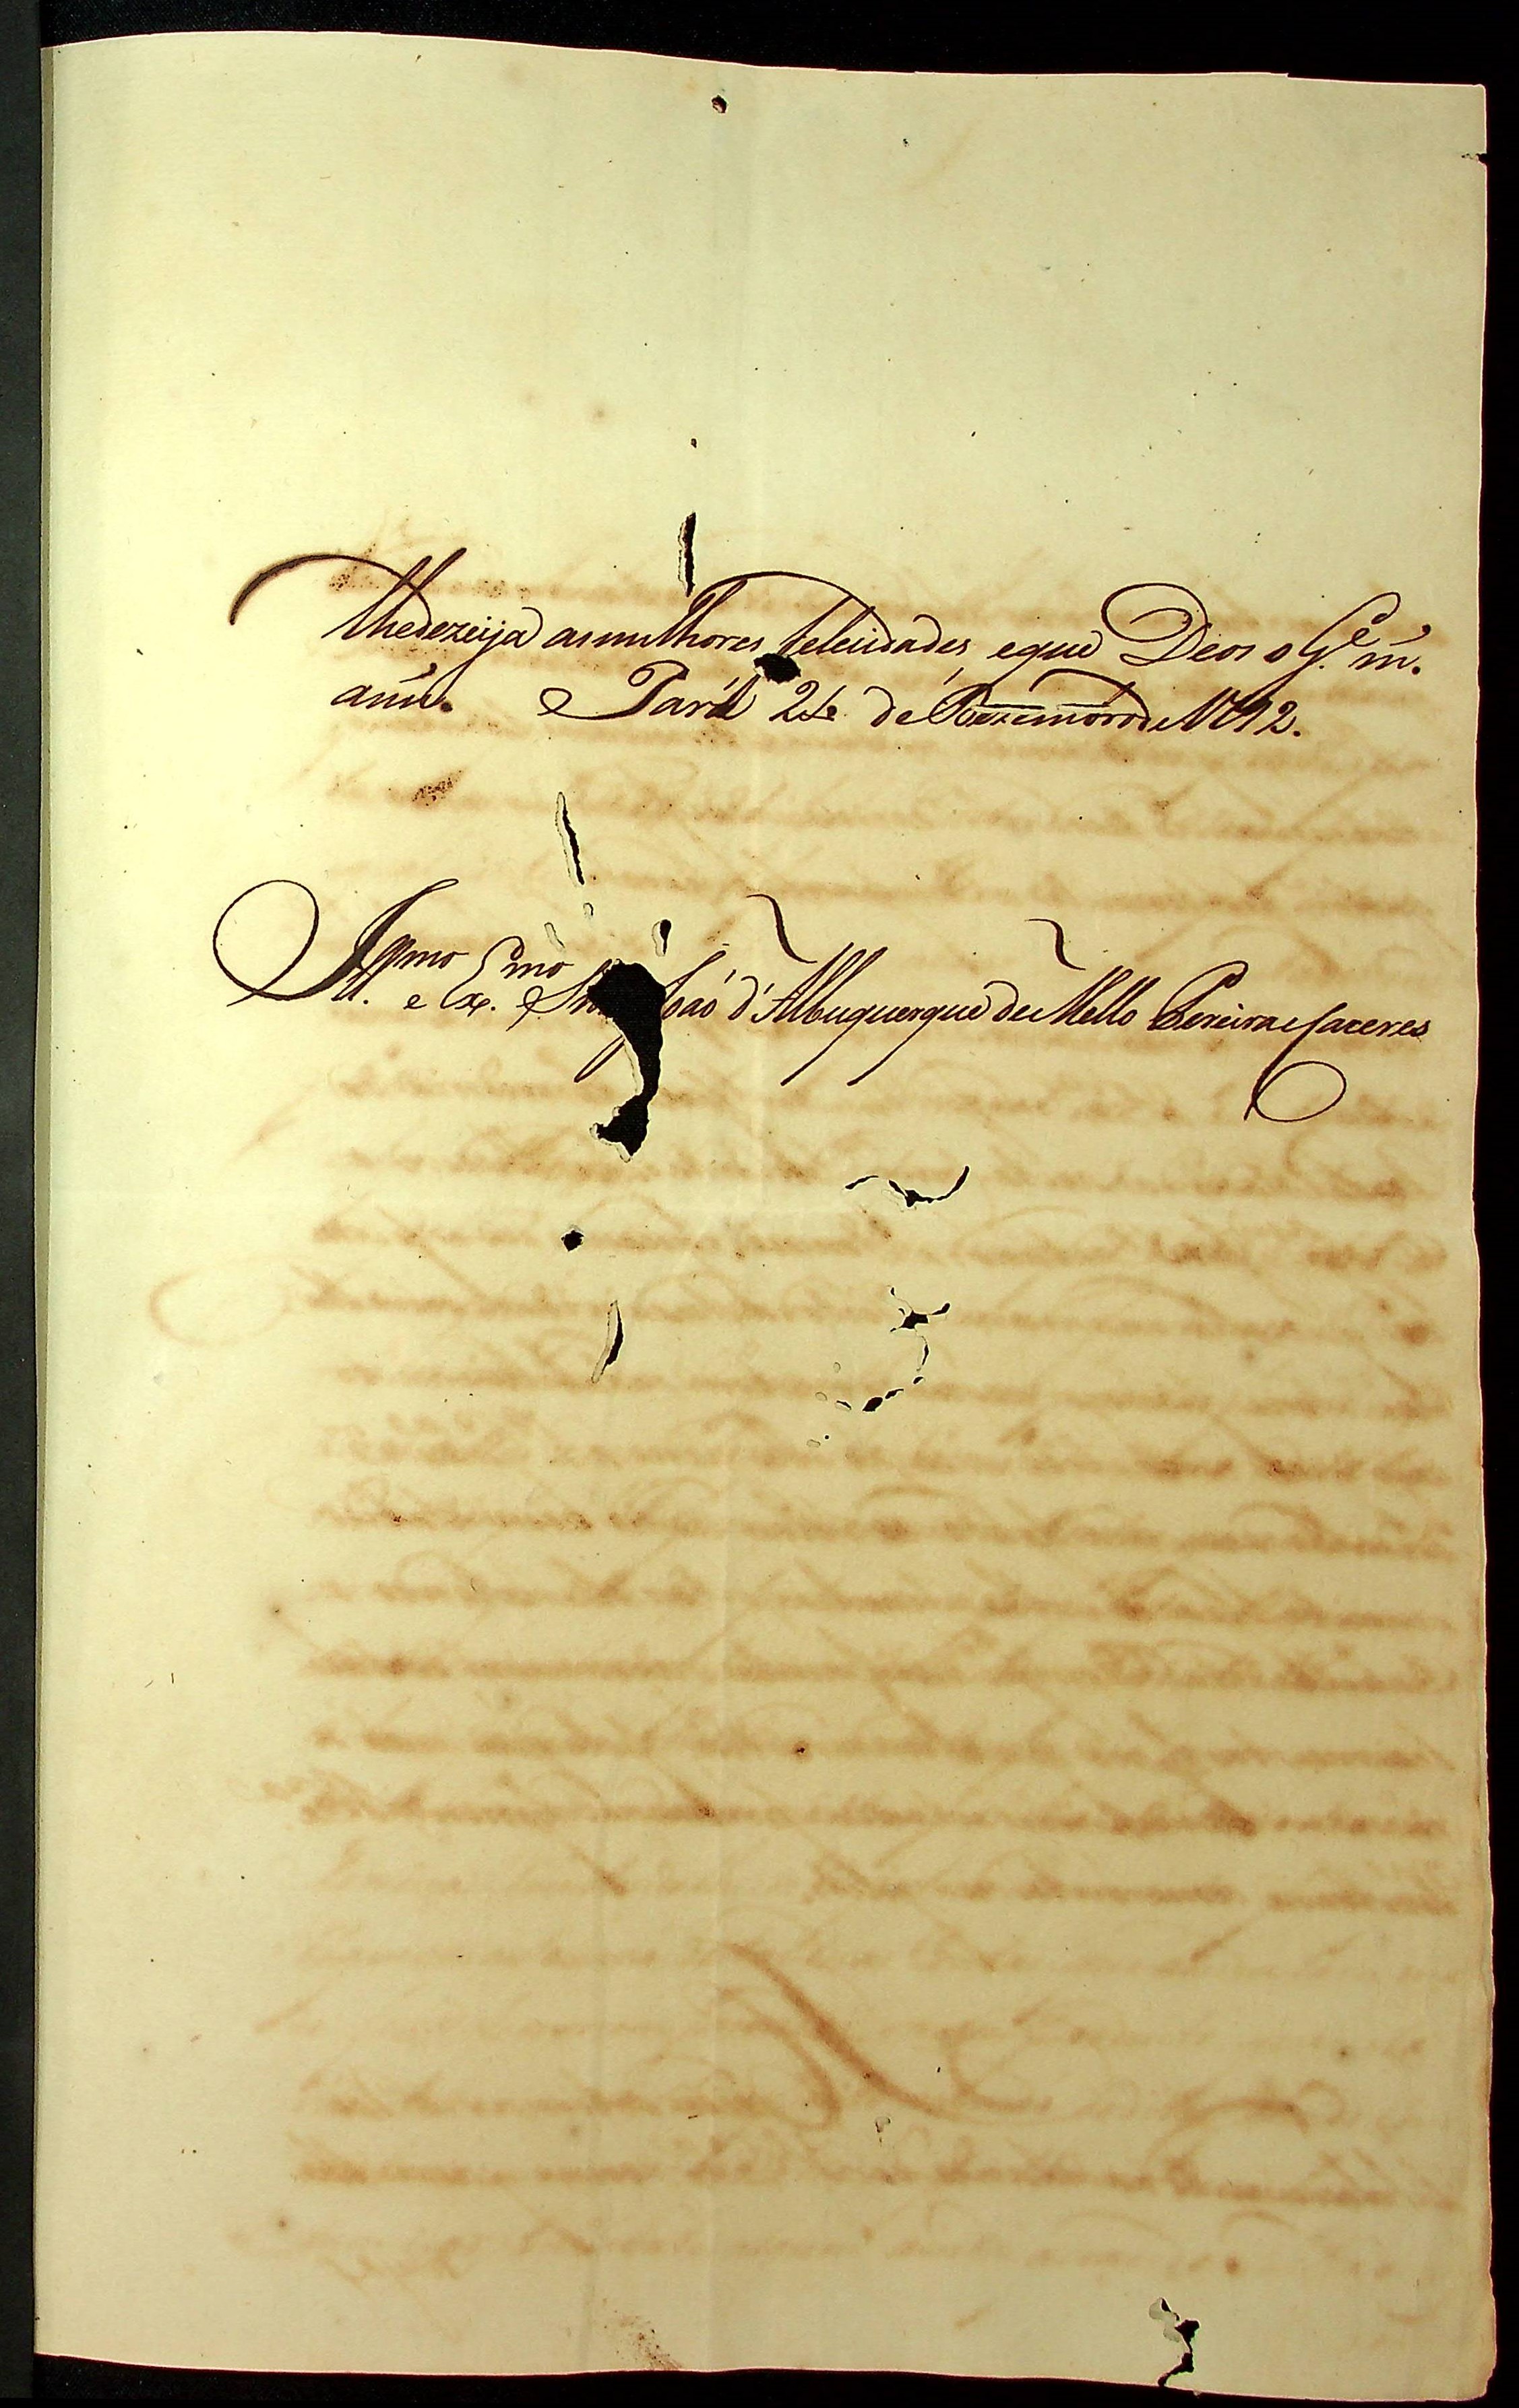 lhe dezeija as milhores felicidades, e que Deos o G.e m.
ann. Pará 24 de Dezembro de 1792.
Ill.mo e Ex.mo Snr João d'Albuquerque de Mello Pereira e Caceres